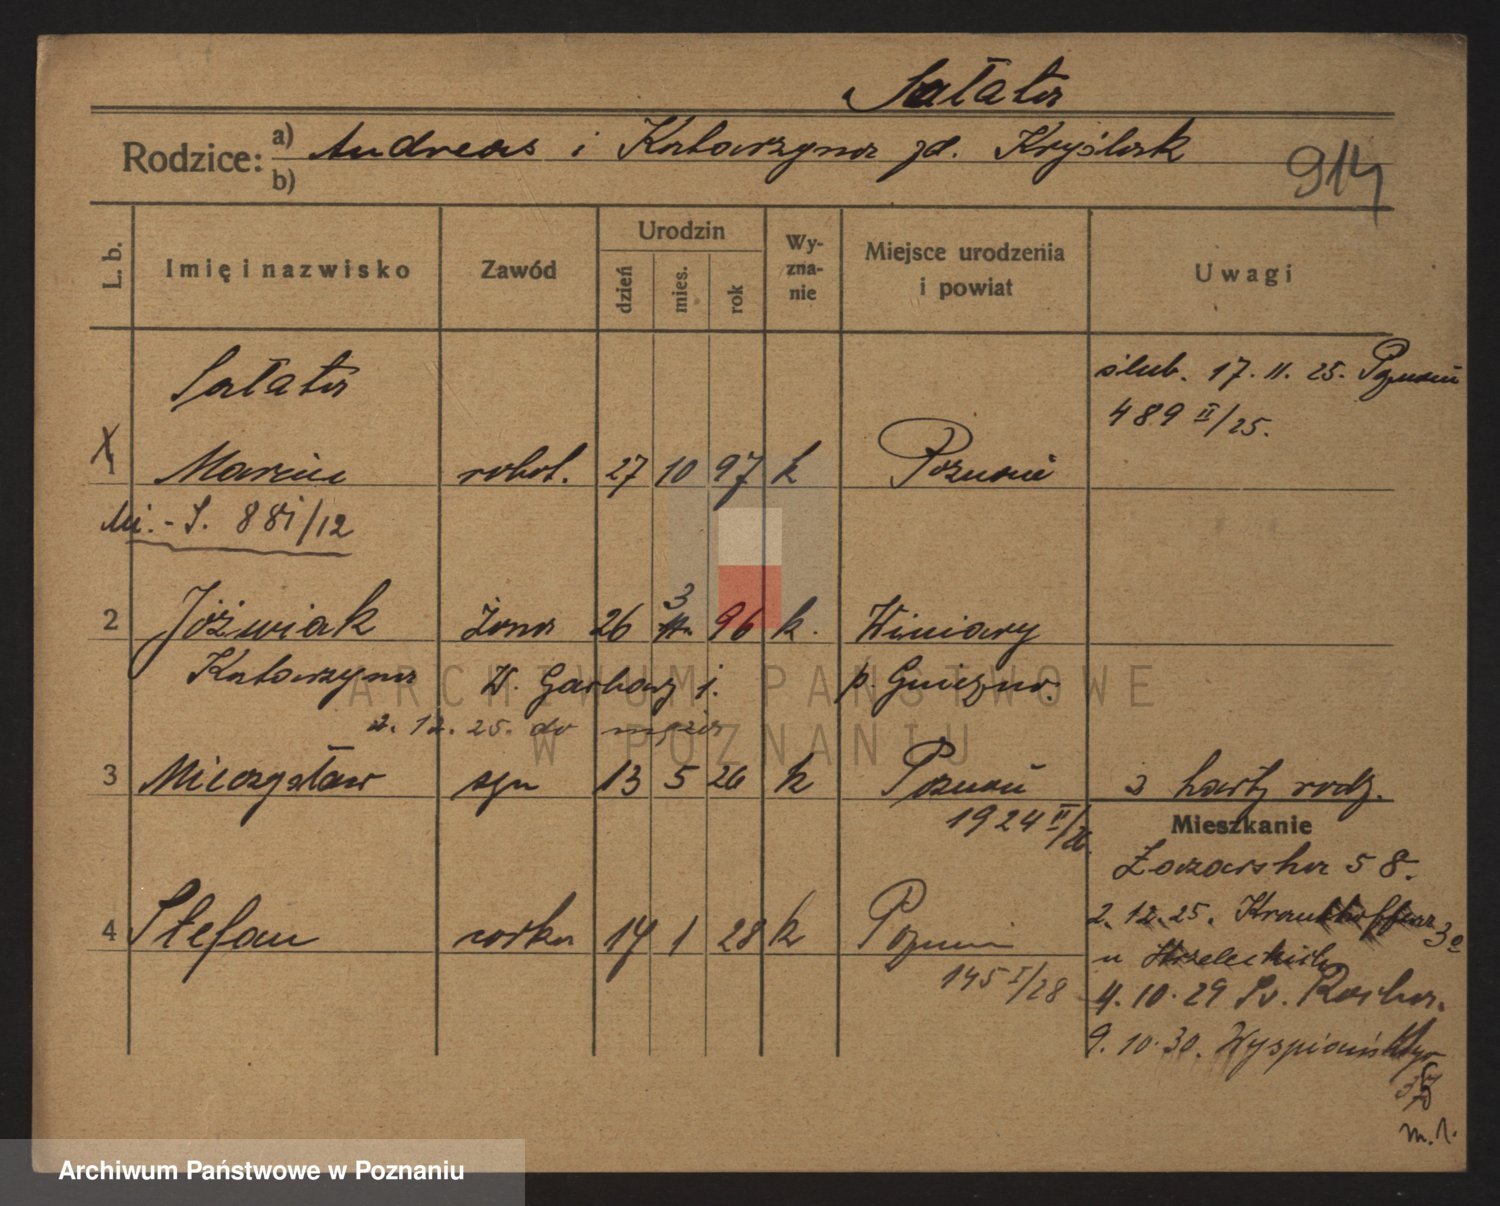 Sałata
Rodzice: a) Andreas i Katarzyna zd. Kryślak
b)
914
L. b.
Imię i nazwisko
Zawód
Urodzin
dzień
mies.
rok
Wy-
zna-
nie
Miejsce urodzenia
i powiat
Uwagi
Sałata
ślub. 17. 11. 25. Poznań
489 II/25.
1 Marcin robot. 27 10 97 k Poznań
Mi. - S. 881/12
2 Jóźwiak żona 26 3 96 k. Winiary
Katarzyna W. Garbary p. Gniezno.
2. 12. 25. do męża
3 Mieczysław syn 13 5 26 k Poznań 3 karty rodz.
1924 II/26.
Mieszkanie
58.
4 Stefan córka 14 1 28 k Poznań
145 I/28
2. 12. 25. 3a
u
4. 10. 29 Św. Rocha.
9. 10. 30. Wyspiańskiego
m. 1.
ARCHIWUM PAŃSTWOWE
W POZNANIU
Archiwum Państwowe w Poznaniu